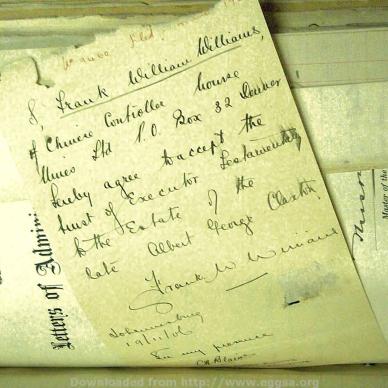 I, Frank William Williams,
of Chinese Controller house
Mines Ltd P.O. Box 32 Denver
hereby agree to accept the
trust of Executor Testamentary
to the Estate of the
late Albert George Claxton
Frank W. Williams
Johannesburg
19/11/06
In my presence
Letters of Admini
Master of the
Downloaded from http://www.eggsa.org